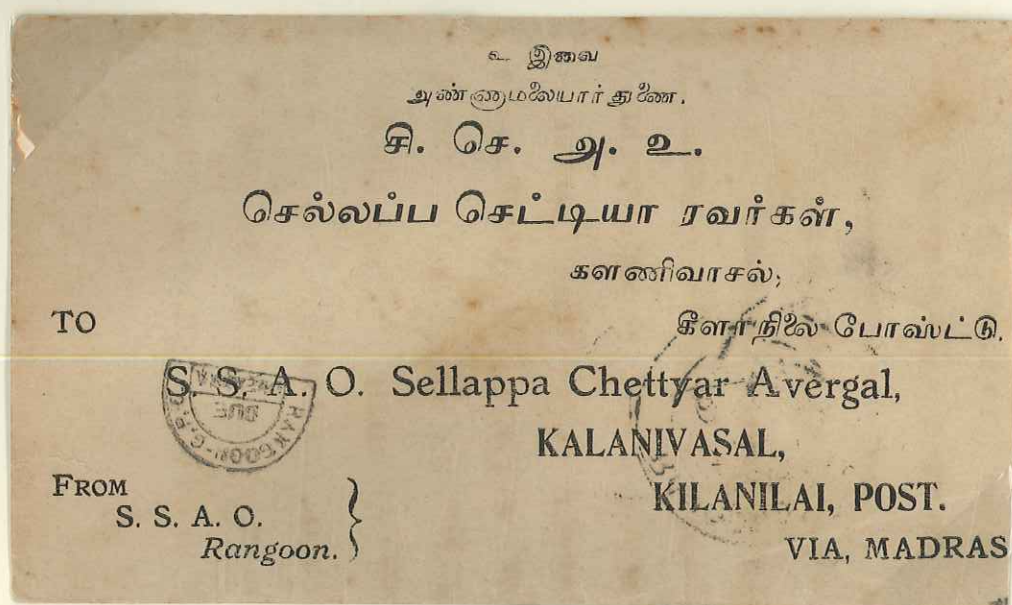 உ இவை
அண்ணாமலையார் துணை.
சி. செ. அ. உ.
செல்லப்ப செட்டியா ரவர்கள்,
களணிவாசல்;
TO
கீளாநிலை போஸ்ட்டு.
S. S. A. O. Sellappa Chettyar Avergal,
KALANIVASAL,
FROM
KILANILAI, POST.
S. S. A. O.
Rangoon.
VIA, MADRAS
RANGOON G.P.O.
DUE